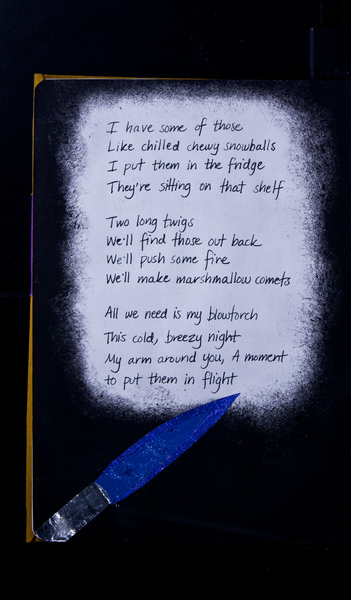 I have some of those
Like chilled chewy snowballs
I put them in the fridge
They're sitting on that shelf
Two long twigs
We'll find those out back
We'll push some fire
We'll make marshmallow comets
All we need is my blowtorch
This cold, breezy night
My arm around you, A moment
to put them in flight